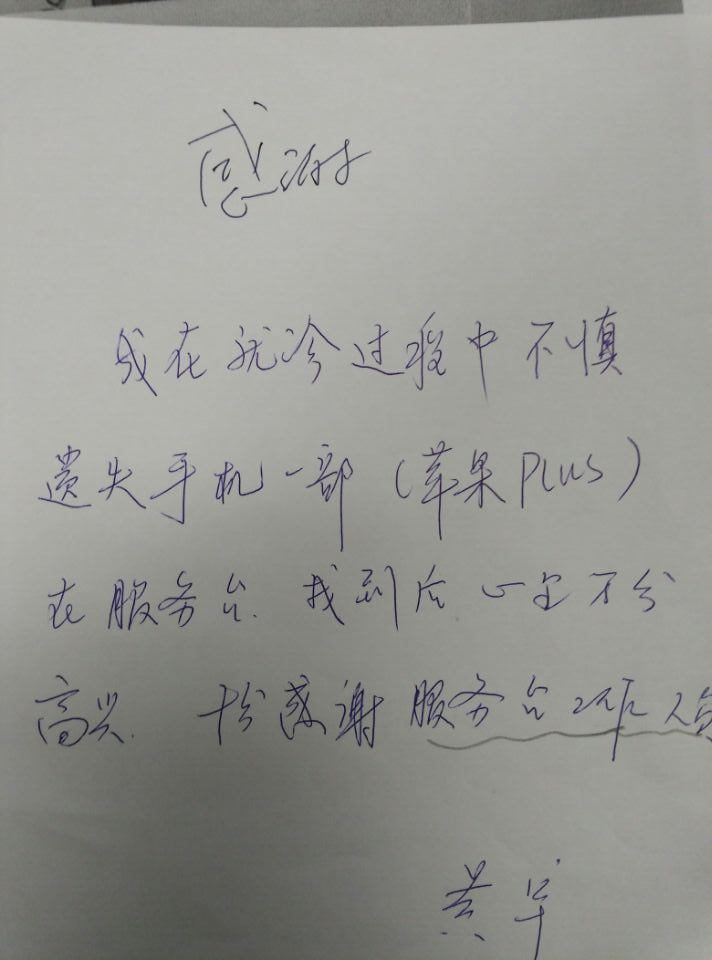 感谢
我在就诊过程中不慎
遗失手机一部（苹果PLUS）
在服务台.找到后心里万分
高兴.十分感谢服务台工作人员
黄军